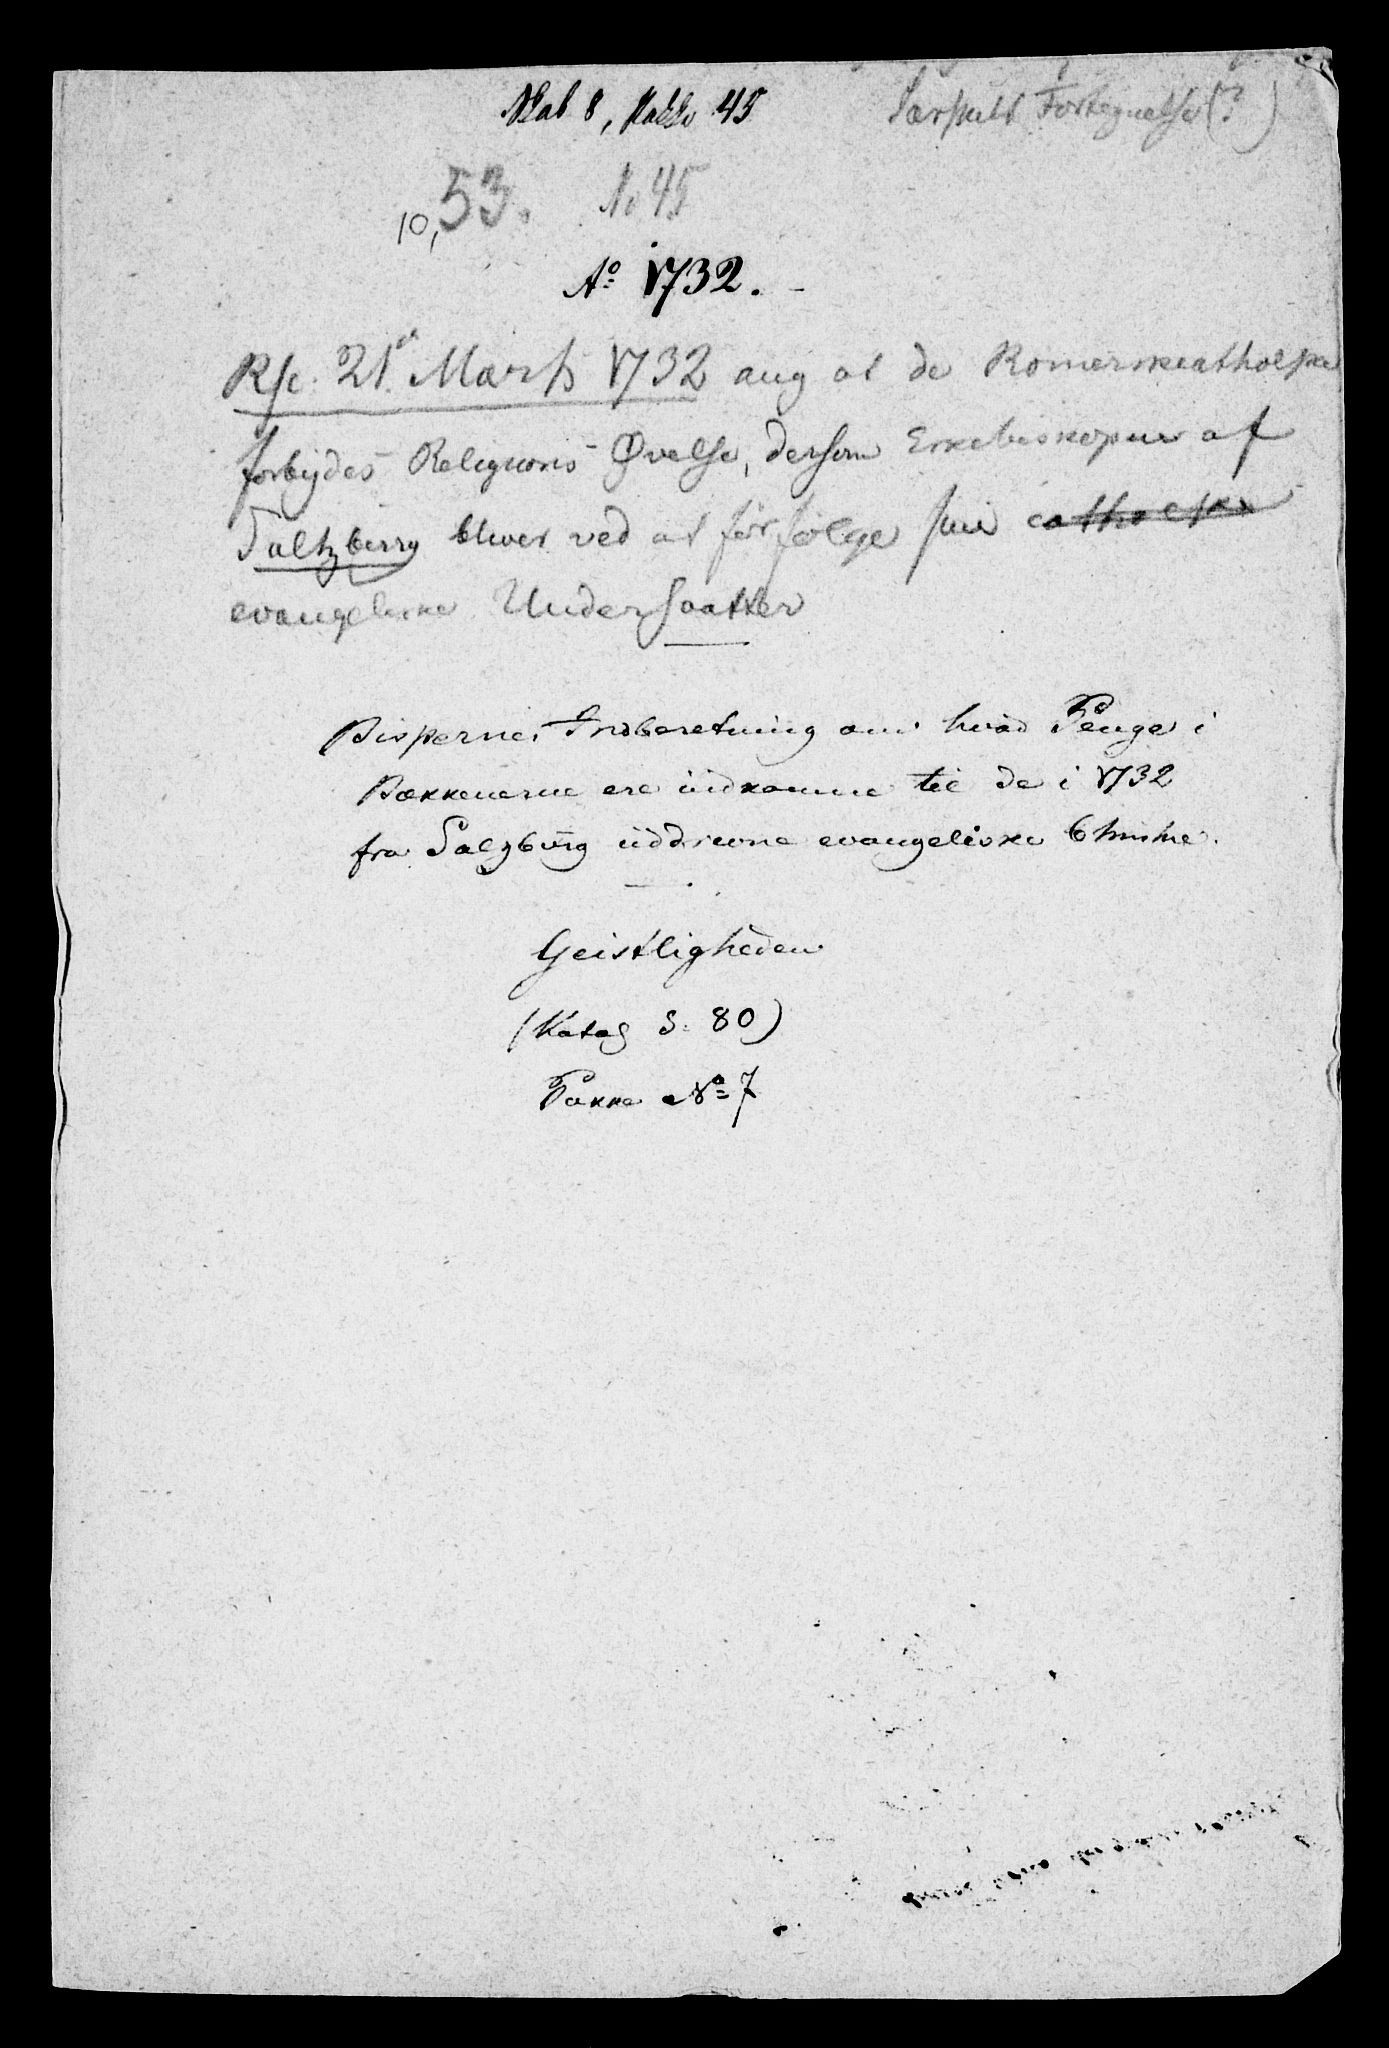 Skab 8, Pakke 45
Særskilt Fortegnelse (?)
10, 53. No 45
Ao 1732.
Rsc: 21 Marts 1732 ang at de Romerskcatholske
forbydes Religions-Øvelse, dersom Erkebiskopen af
Saltzburg bliver ved at forfølge sine catholske
evangeliske Undersaatter
Bispernes Indberetning om hvad Penge i
Bækkenerne ere indkomne til de i 1732
fra Salzburg uddrevne evangeliske Christne.
Geistligheden
(Katal S. 80)
Pakke No 7